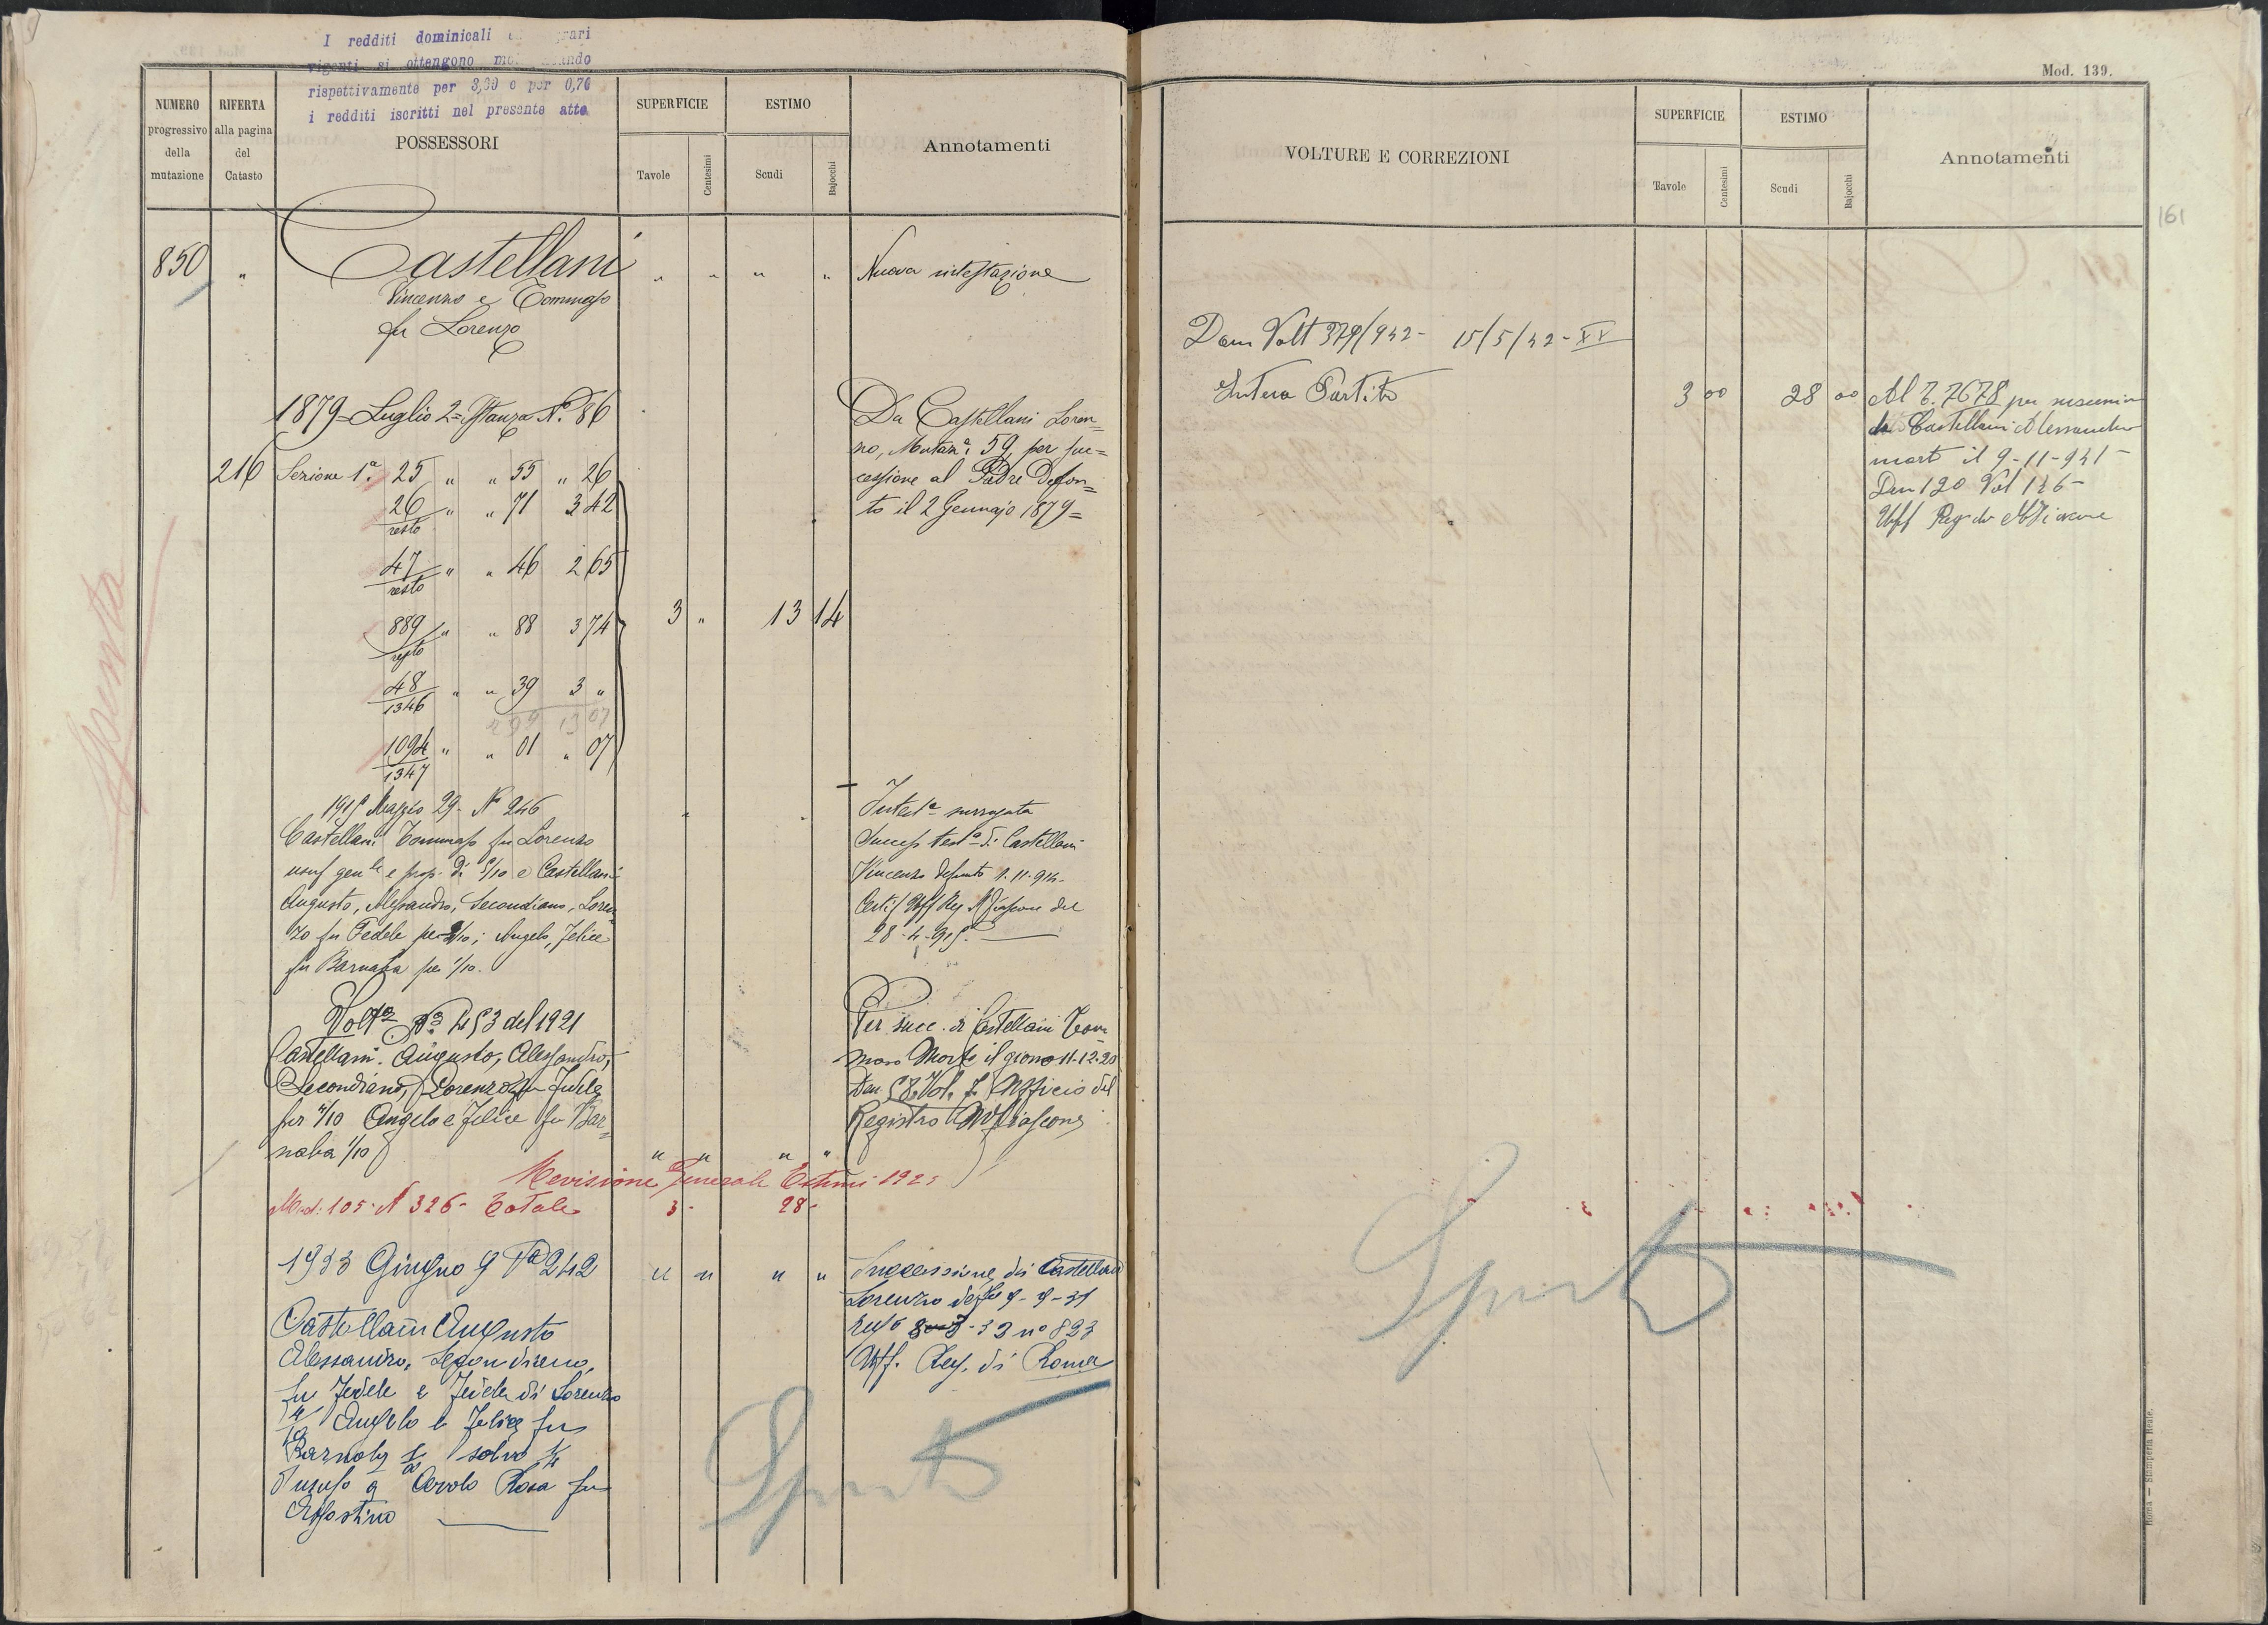 I redditi dominicali
vigenti si ottengono
rispettivamente per 3,60 e per 0,70
i redditi iscritti nel presente atto
NUMERO progressivo della mutazione
RIFERTA alla pagina del Catasto
POSSESSORI
SUPERFICIE
Tavole
Centesimi
ESTIMO
Scudi
Bajocchi
Annotamenti
850 " Castellani " " " " Nuova intestazione
Vincenzo e Tommaso
fu Lorenzo
1879 = Luglio 2 = Istanza N.º 86
216 Sezione 1ª 25 " " 55 " 26
26/resto " " 71 3 42
47/resto " " 46 2 65
889/resto " " 88 3 74
48/1346 " " 39 3 "
2 99 13 07
1094/1347 " " 01 " 07
3 " 13 14
Da Castellani Loren=
zo, Mutazª 59, per suc=
cessione al Padre Defon=
to il 2 Gennajo 1879=
1915 Maggio 29 - Nº 246
Castellani Tommaso fu Lorenzo
usuf genle e prop. di 5/10 e Castellani
Augusto, Alessandro, Secondiano, Loren
zo fu Fedele per 4/10; Angelo, Felice
fu Barnaba per 1/10.
Intestª surrogata
Success testª di Castellani
Vincenzo defunto 1.11.914-
Certif Uff Reg Mfiascone del
28-4-915
Voltª Nº 453 del 1921
Castellani Augusto, Alessandro,
Secondiano, Lorenzo fu Fedele
per 4/10 Angelo e Felice fu Bar=
naba 1/10 " " " "
Per succ. di Castellani Tom
maso Morto il giorno 11-12-20
Den 58 Vol. Ufficio del
Registro Mfiascone
Revisione Generale Estimi 192
Mod: 105 N 326 - Totale 3 - 28 -
1933 Giugno 9 Nº 242 " " " "
Castellani Augusto
Alessandro, Secondiano,
fu Fedele e Fedele di Lorenzo
4/10 Angelo e Felice fu
Barnaba 1/10 salvo 1/4
Usufo a Rosa fu
Agostino
Successione di Castellani
Lorenzo 9-9-31
nº 823
Uff. Reg. di Roma
Spenta
Spenta
Mod. 139.
VOLTURE E CORREZIONI
SUPERFICIE
Tavole
Centesimi
ESTIMO
Scudi
Bajocchi
Annotamenti
161
Dom Volt 379/942 - 15/5/42 - XX
Intera Partita 3 00 28 00
Al 7678 per
Castellani Alessandro
mort il 9-11-941 -
Den 120 Vol 126 -
Uff Reg
Spenta
Roma — Stamperia Reale.